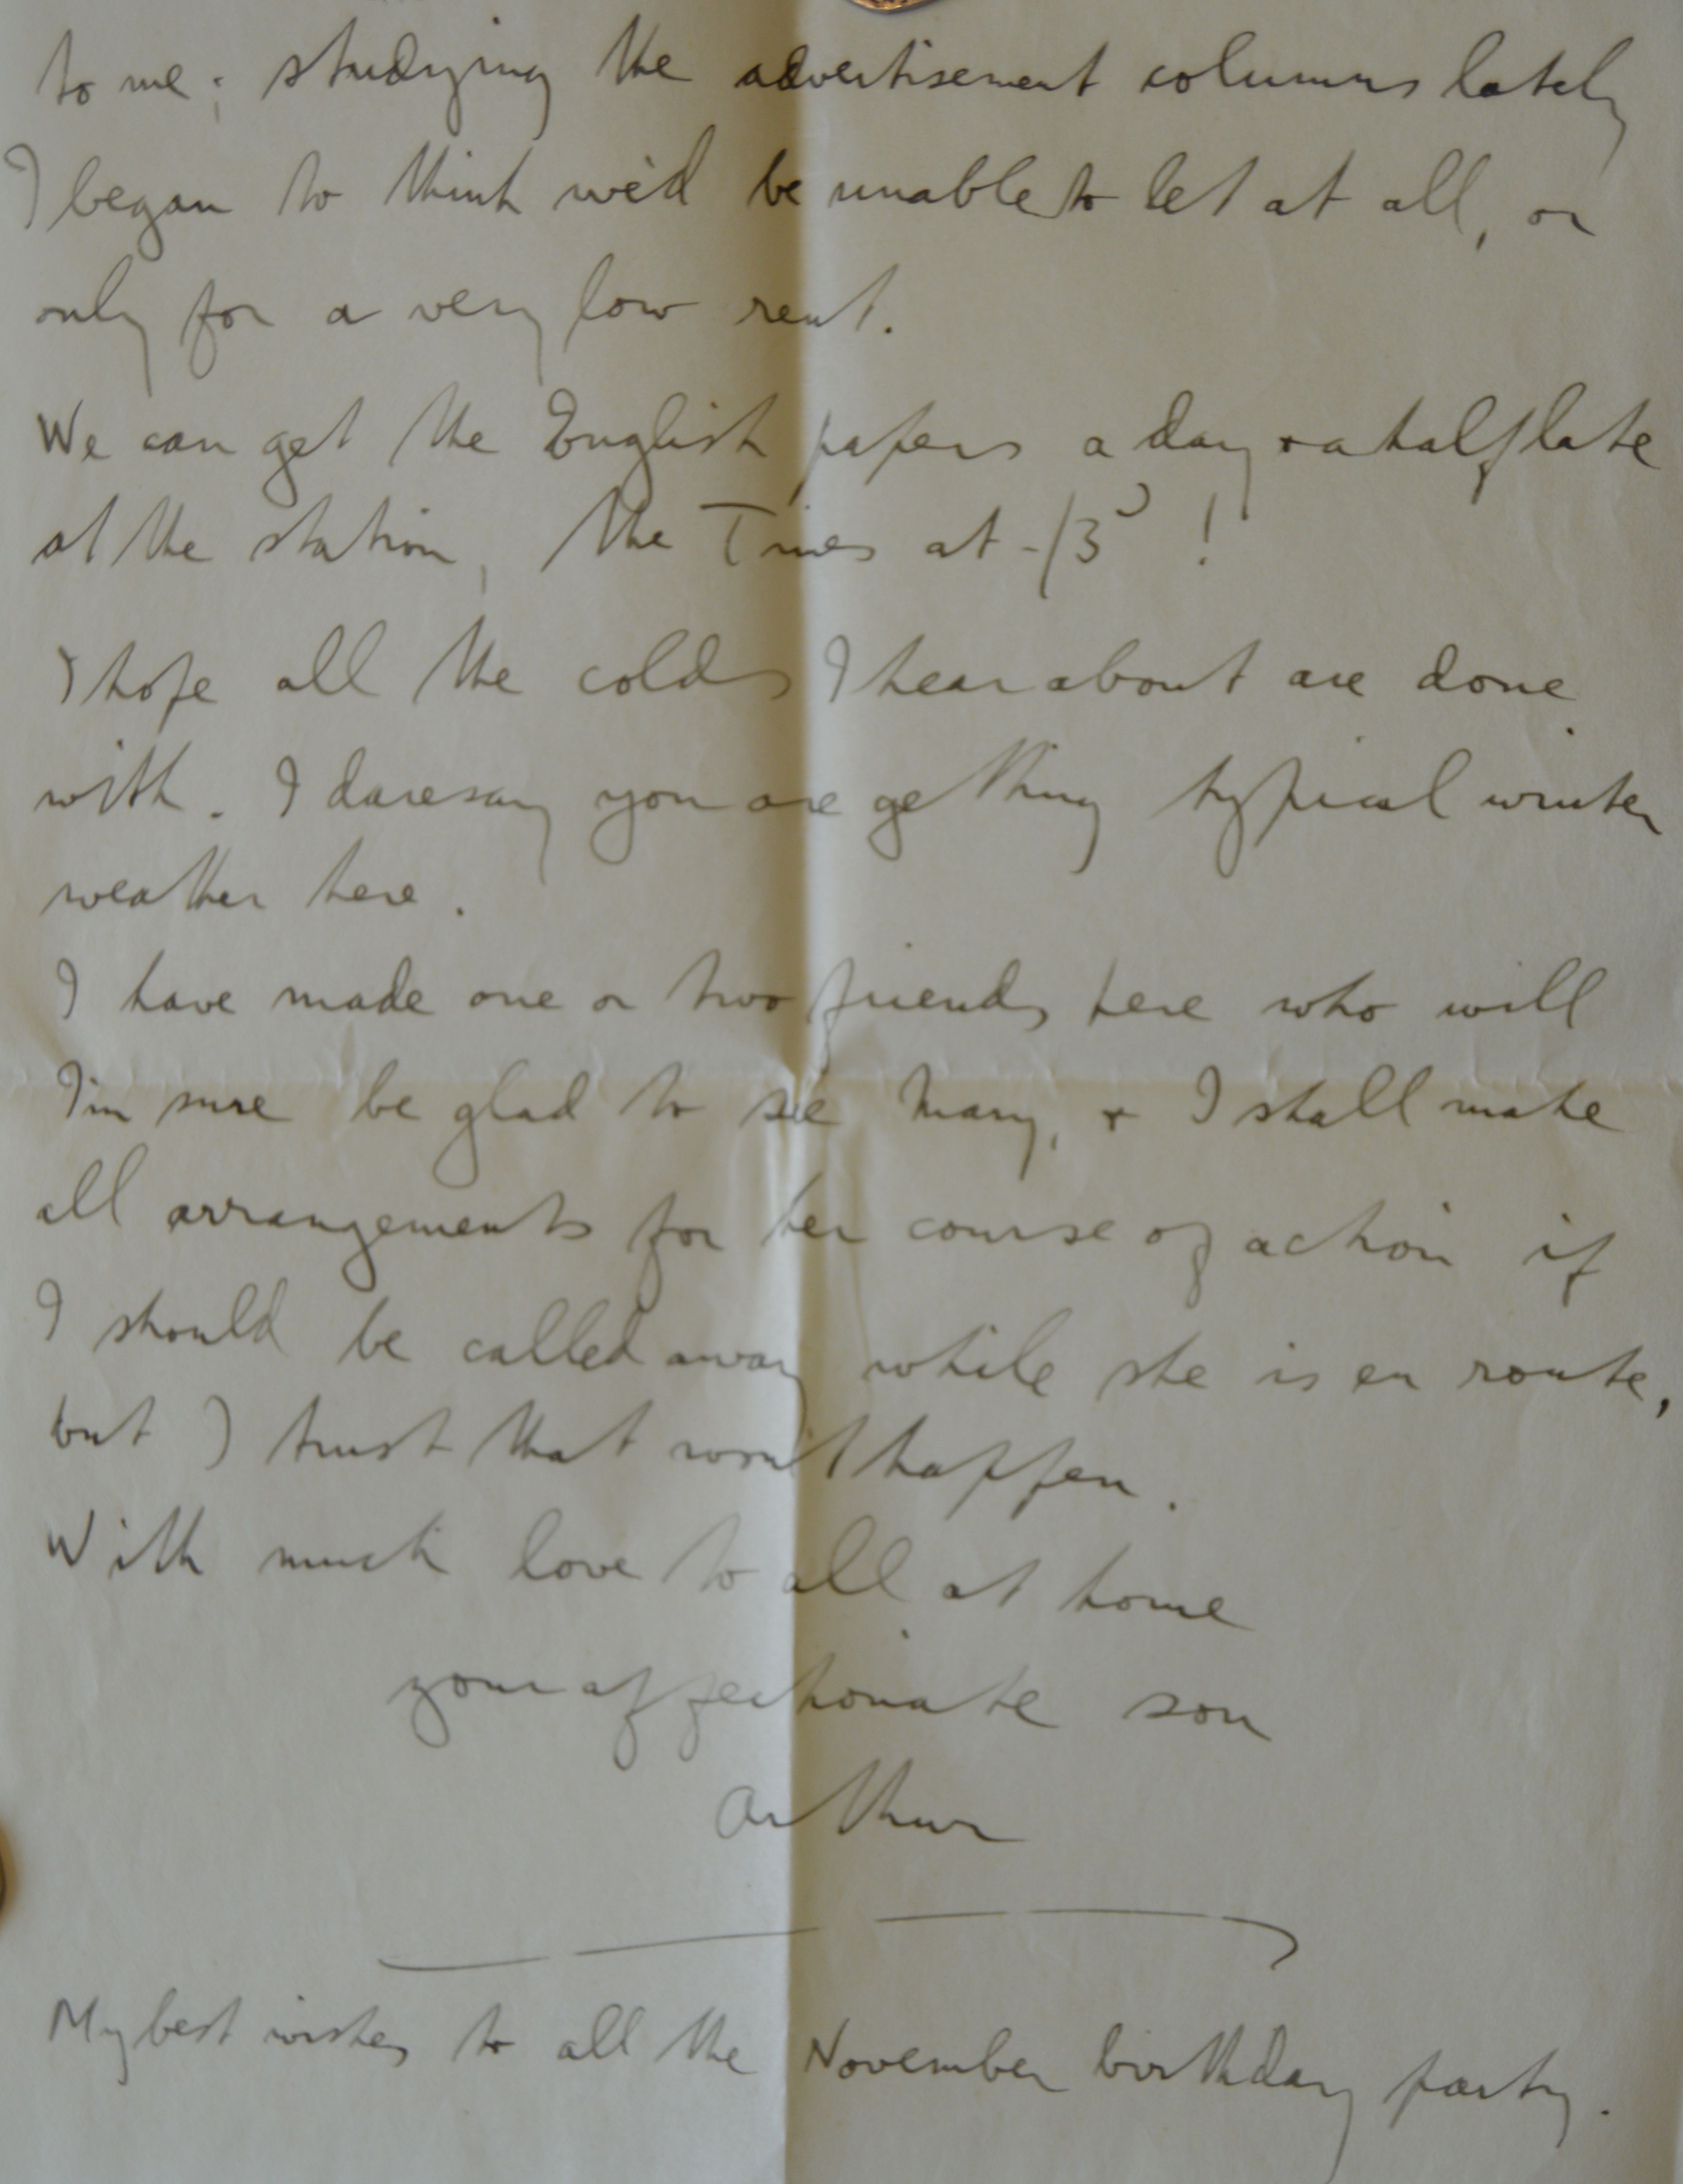 to me; studying the advertisement columns lately
I began to think we'd be unable to let at all, or
only for a very low rent.
We can get the English papers a day + a half late
at the station, the Times at -/3ᴰ !
I hope all the colds I hear about are done
with. I daresay you are getting typical winter
weather here.
I have made one or two friends here who will
I'm sure be glad to see Mary, + I shall make
all arrangements for her course of action if
I should be called away while she is en route,
but I trust that won't happen.
With much love to all at home
your affectionate son
Arthur
My best wishes to all the November birthday party.